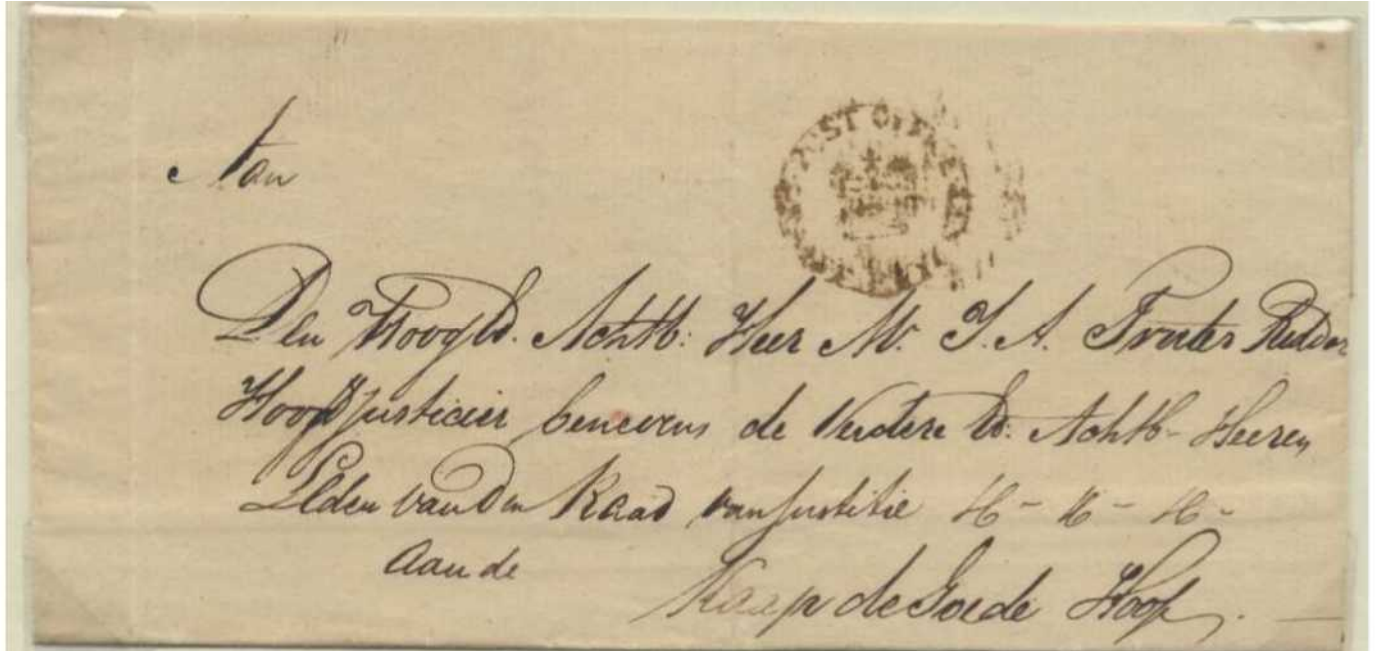 POST OFFICE
Aan
Den Hoog Ed. Achtb: Heer Mr. J. A. Truter Ridder
Hoofdjusticier benevens de Verdere Ed. Achtb- Heeren
Leden van Den Raad van Justitie &c - &c - &c -
aan de
Kaap de Goede Hoop.